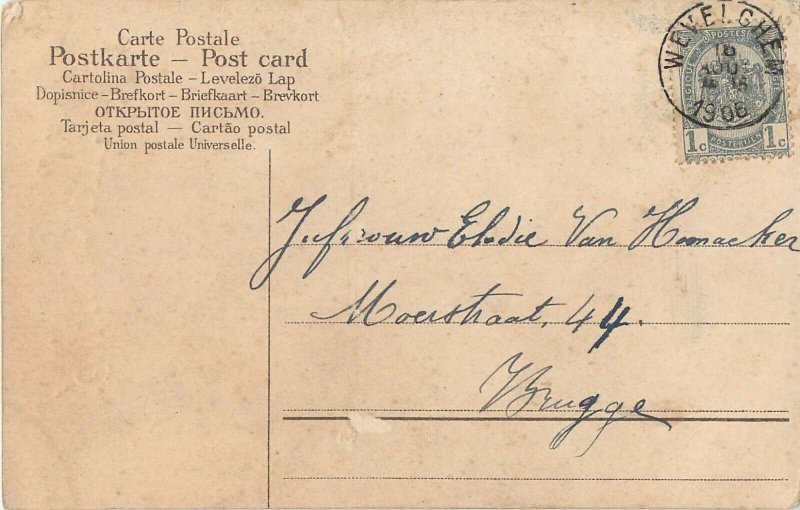 Carte Postale
Postkarte — Post card
Cartolina Postale – Levelező Lap
Dopisnice – Brefkort – Briefkaart – Brevkort
ОТКРЫТОЕ ПИСЬМО.
Tarjeta postal — Cartão postal
Union postale Universelle.
WEVELGHEM
16
1908
POSTES
1c 1c
POSTERIJEN
Jufvrouw Elodie Van Hoonacker
Moerstraat, 44.
Brugge